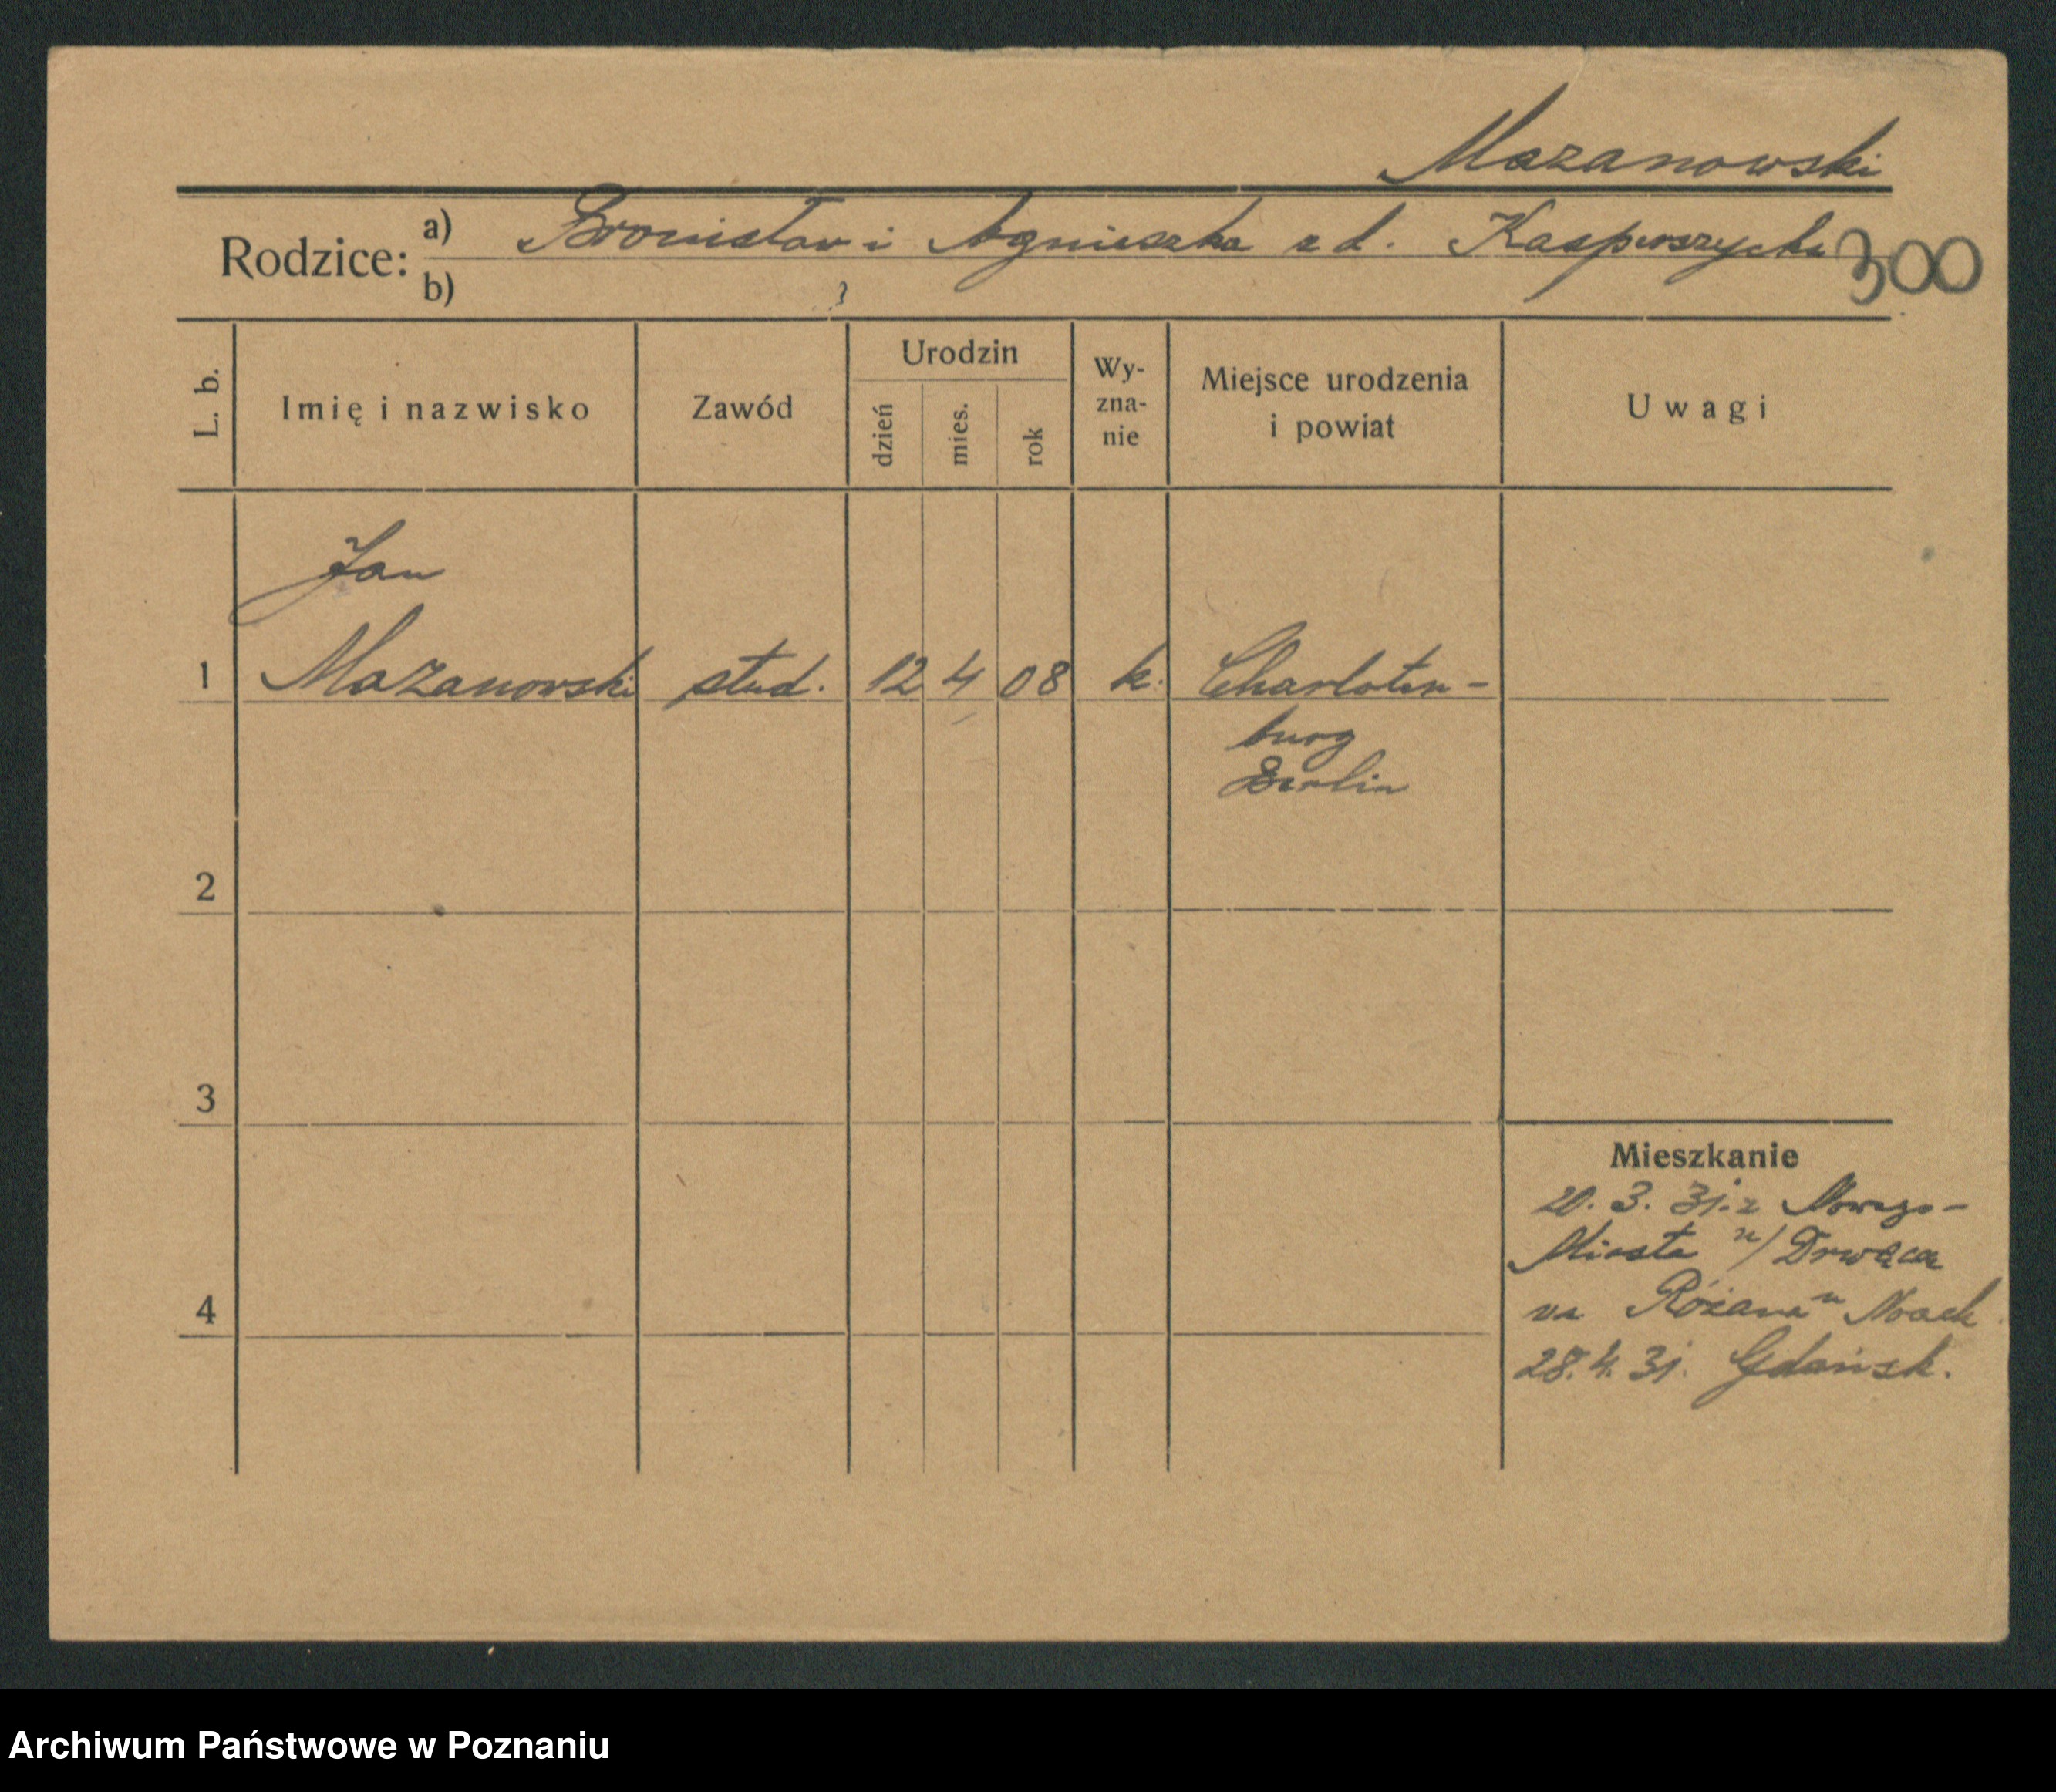 Mazanowski
Rodzice: a) Bronisław i Agnieszka z d. Kasperszycka
300
b)
L. b.
Imię i nazwisko
Zawód
Urodzin
dzień
mies.
rok
Wy-
zna-
nie
Miejsce urodzenia
i powiat
Uwagi
Jan
1 Mazanowski stud. 12 4 08 k. Charloten-
burg
Berlin
2
3
Mieszkanie
20. 3. 31. z Nowego-
Miasta n/ Drwęcą
4
na Różana u Noack
28. 4. 31. Gdańsk.
Archiwum Państwowe w Poznaniu